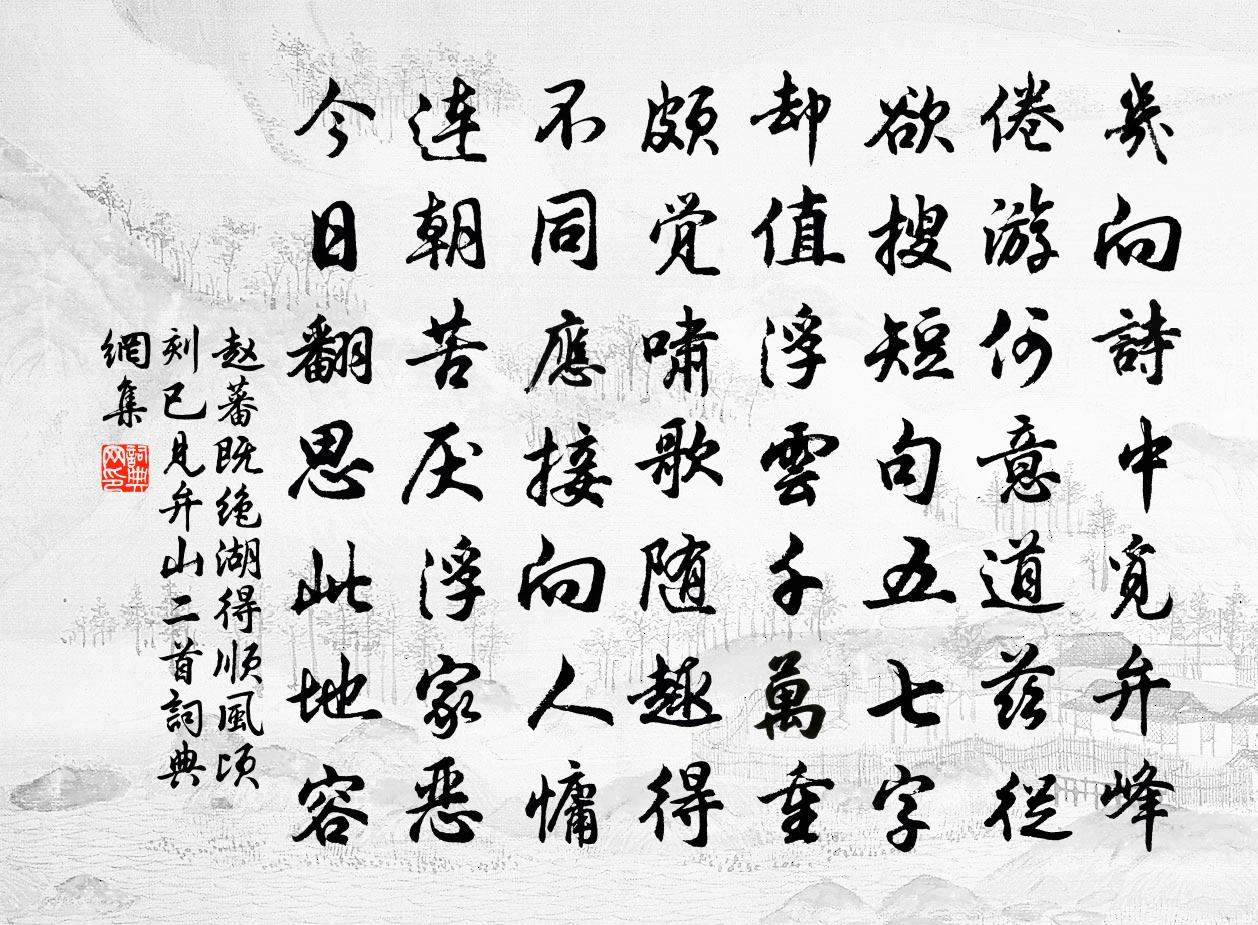 幾向詩中覓弁峰
倦游何意道茲從
欲搜短句五七字
却值浮雲千萬重
頗覚嘯歌随趣得
不同應接向人慵
連朝苦厌浮家恶
今日翻思此地容
赵蕃既绝湖得顺風顷
刻已見弁山二首詞典
網集
詞典网印